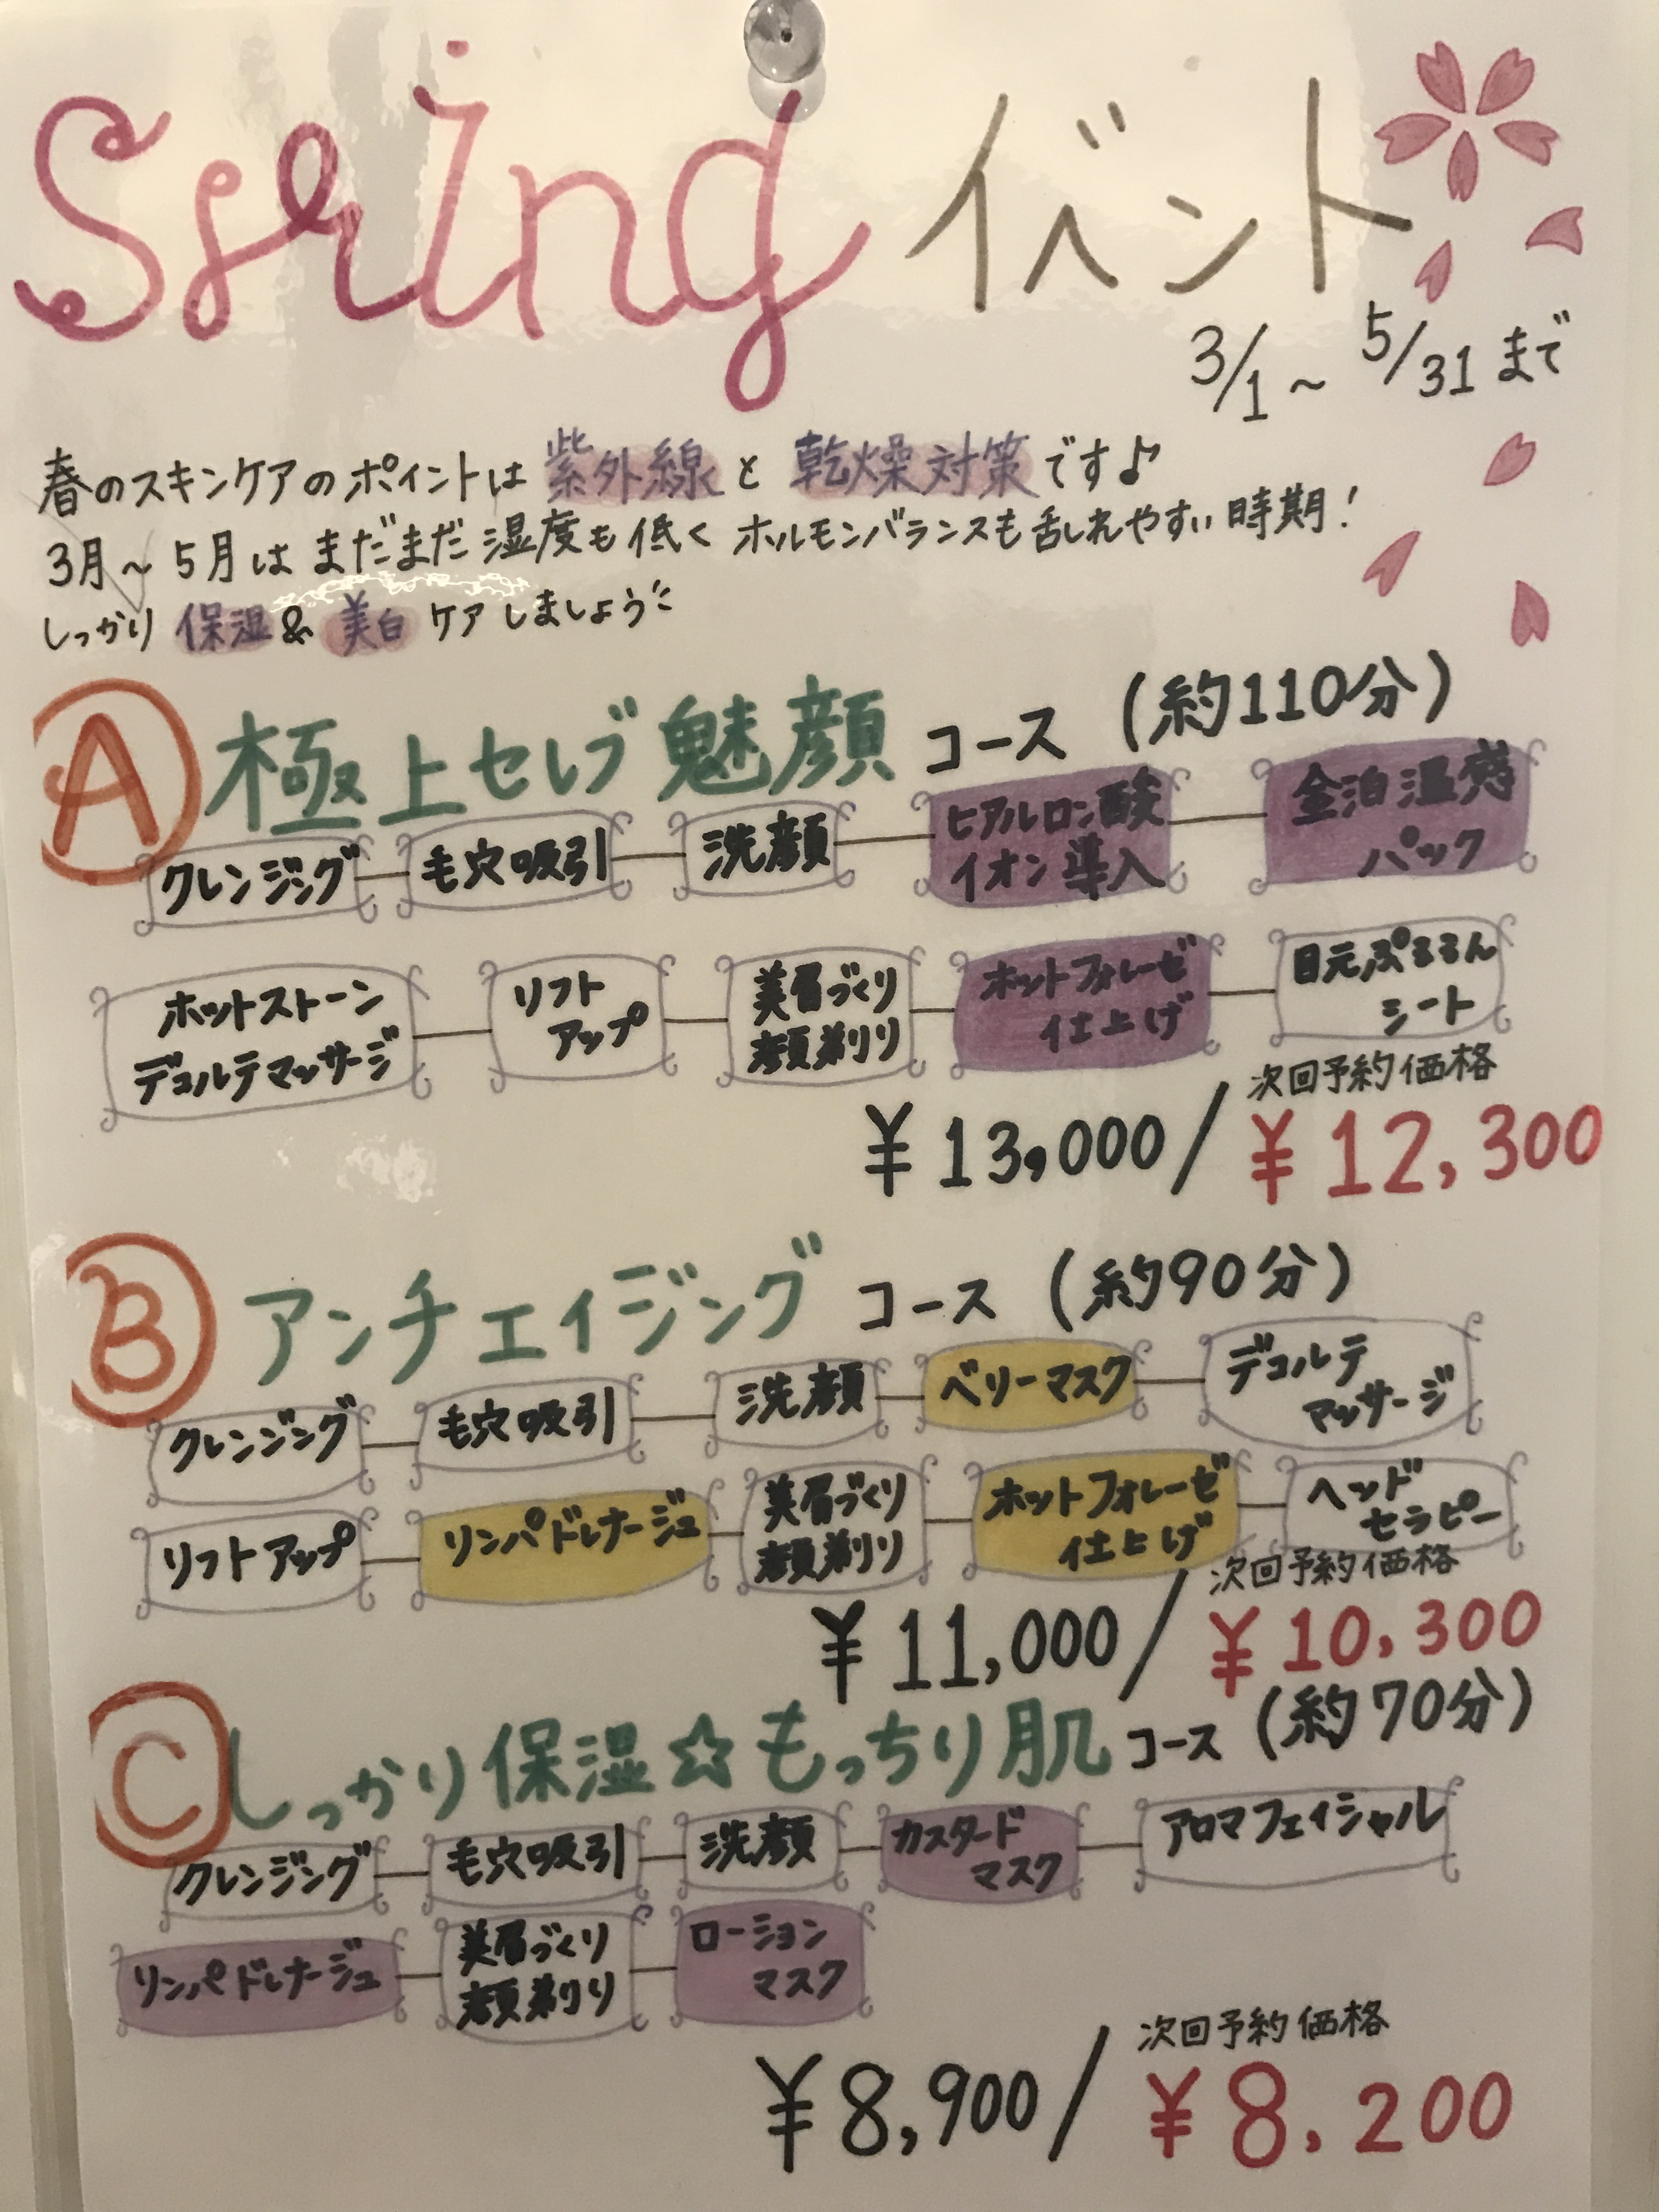 Spring イベント
3/1～5/31まで
春のスキンケアのポイントは紫外線と乾燥対策です♪
3月～5月はまだまだ湿度も低くホルモンバランスも乱れやすい時期！
しっかり保湿&美白ケアしましょう
A 極上セレブ魅顔コース (約110分)
クレンジング 毛穴吸引 洗顔 ヒアルロン酸 金泊温感
イオン導入 パック
ホットストーン リフト 美眉づくり ホットフォレーゼ 目元ぷるるん
デコルテマッサージ アップ 顔剃り 仕上げ シート
次回予約価格
¥13,000/¥12,300
B アンチエイジングコース (約90分)
クレンジング 毛穴吸引 洗顔 ベリーマスク デコルテ
マッサージ
リフトアップ リンパドレナージュ 美眉づくり ホットフォレーゼ ヘッド
顔剃り 仕上げ セラピー
次回予約価格
¥11,000/¥10,300
C しっかり保湿☆もっちり肌コース (約70分)
クレンジング 毛穴吸引 洗顔 カスタード アロマフェイシャル
マスク
リンパドレナージュ 美眉づくり ローション
顔剃り マスク
次回予約価格
¥8,900/¥8,200